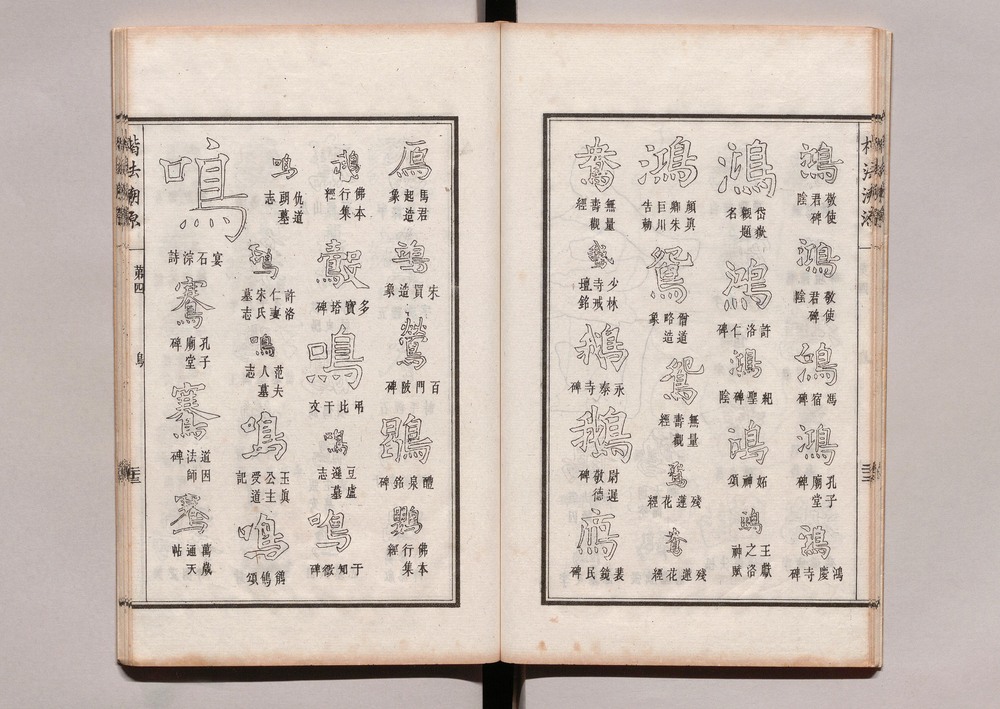 楷法溯源
鴻 敬使君碑陰
鴻 敬使君碑陰
鴻 馮宿碑
鴻 孔子廟堂碑
鴻 鴻慶寺碑
鴻 岱嶽觀題名
鴻 許洛仁碑
鴻 紀聖碑陰
鴻 妬神頌
王獻之洛神賦
鴻 顏眞卿朱巨川告勅
鴛 僧道略造象
鴛 無量壽觀經
鴛 殘蓮花經
鴦 殘蓮花經
鴦 無量壽觀經
少林寺戒壇銘
鵝 永泰寺碑
鵝 尉遲敬德碑
鴈 裴鏡民碑
鴈 馬君起造象
朱買造象
鶯 百門陂碑
醴泉銘碑
鸚 佛本行集經
鵝 佛本行集經
鷇 多寶塔碑
鳴 弔比干文
鳴 豆盧遜墓志
鳴 于知微碑
鳴 仇道朗墓志
鳴 許洛仁妻宋氏墓志
鳴 范夫人墓志
鳴 玉眞公主受道記
鳴 鶺鴒頌
鳴 宴石淙詩
鶱 孔子廟堂碑
鶱 道因法師碑
鶱 萬歲通天帖
楷法溯源 第四 鳥